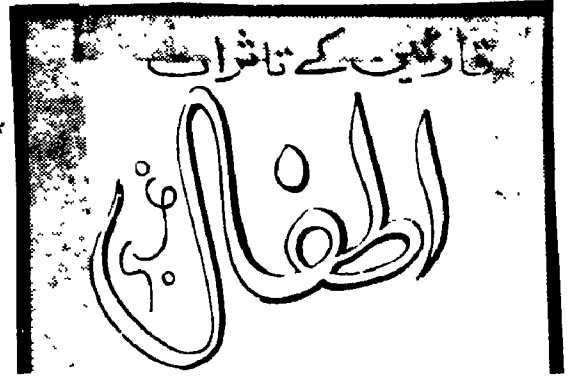 قارئین کے تاثرات
اطفال